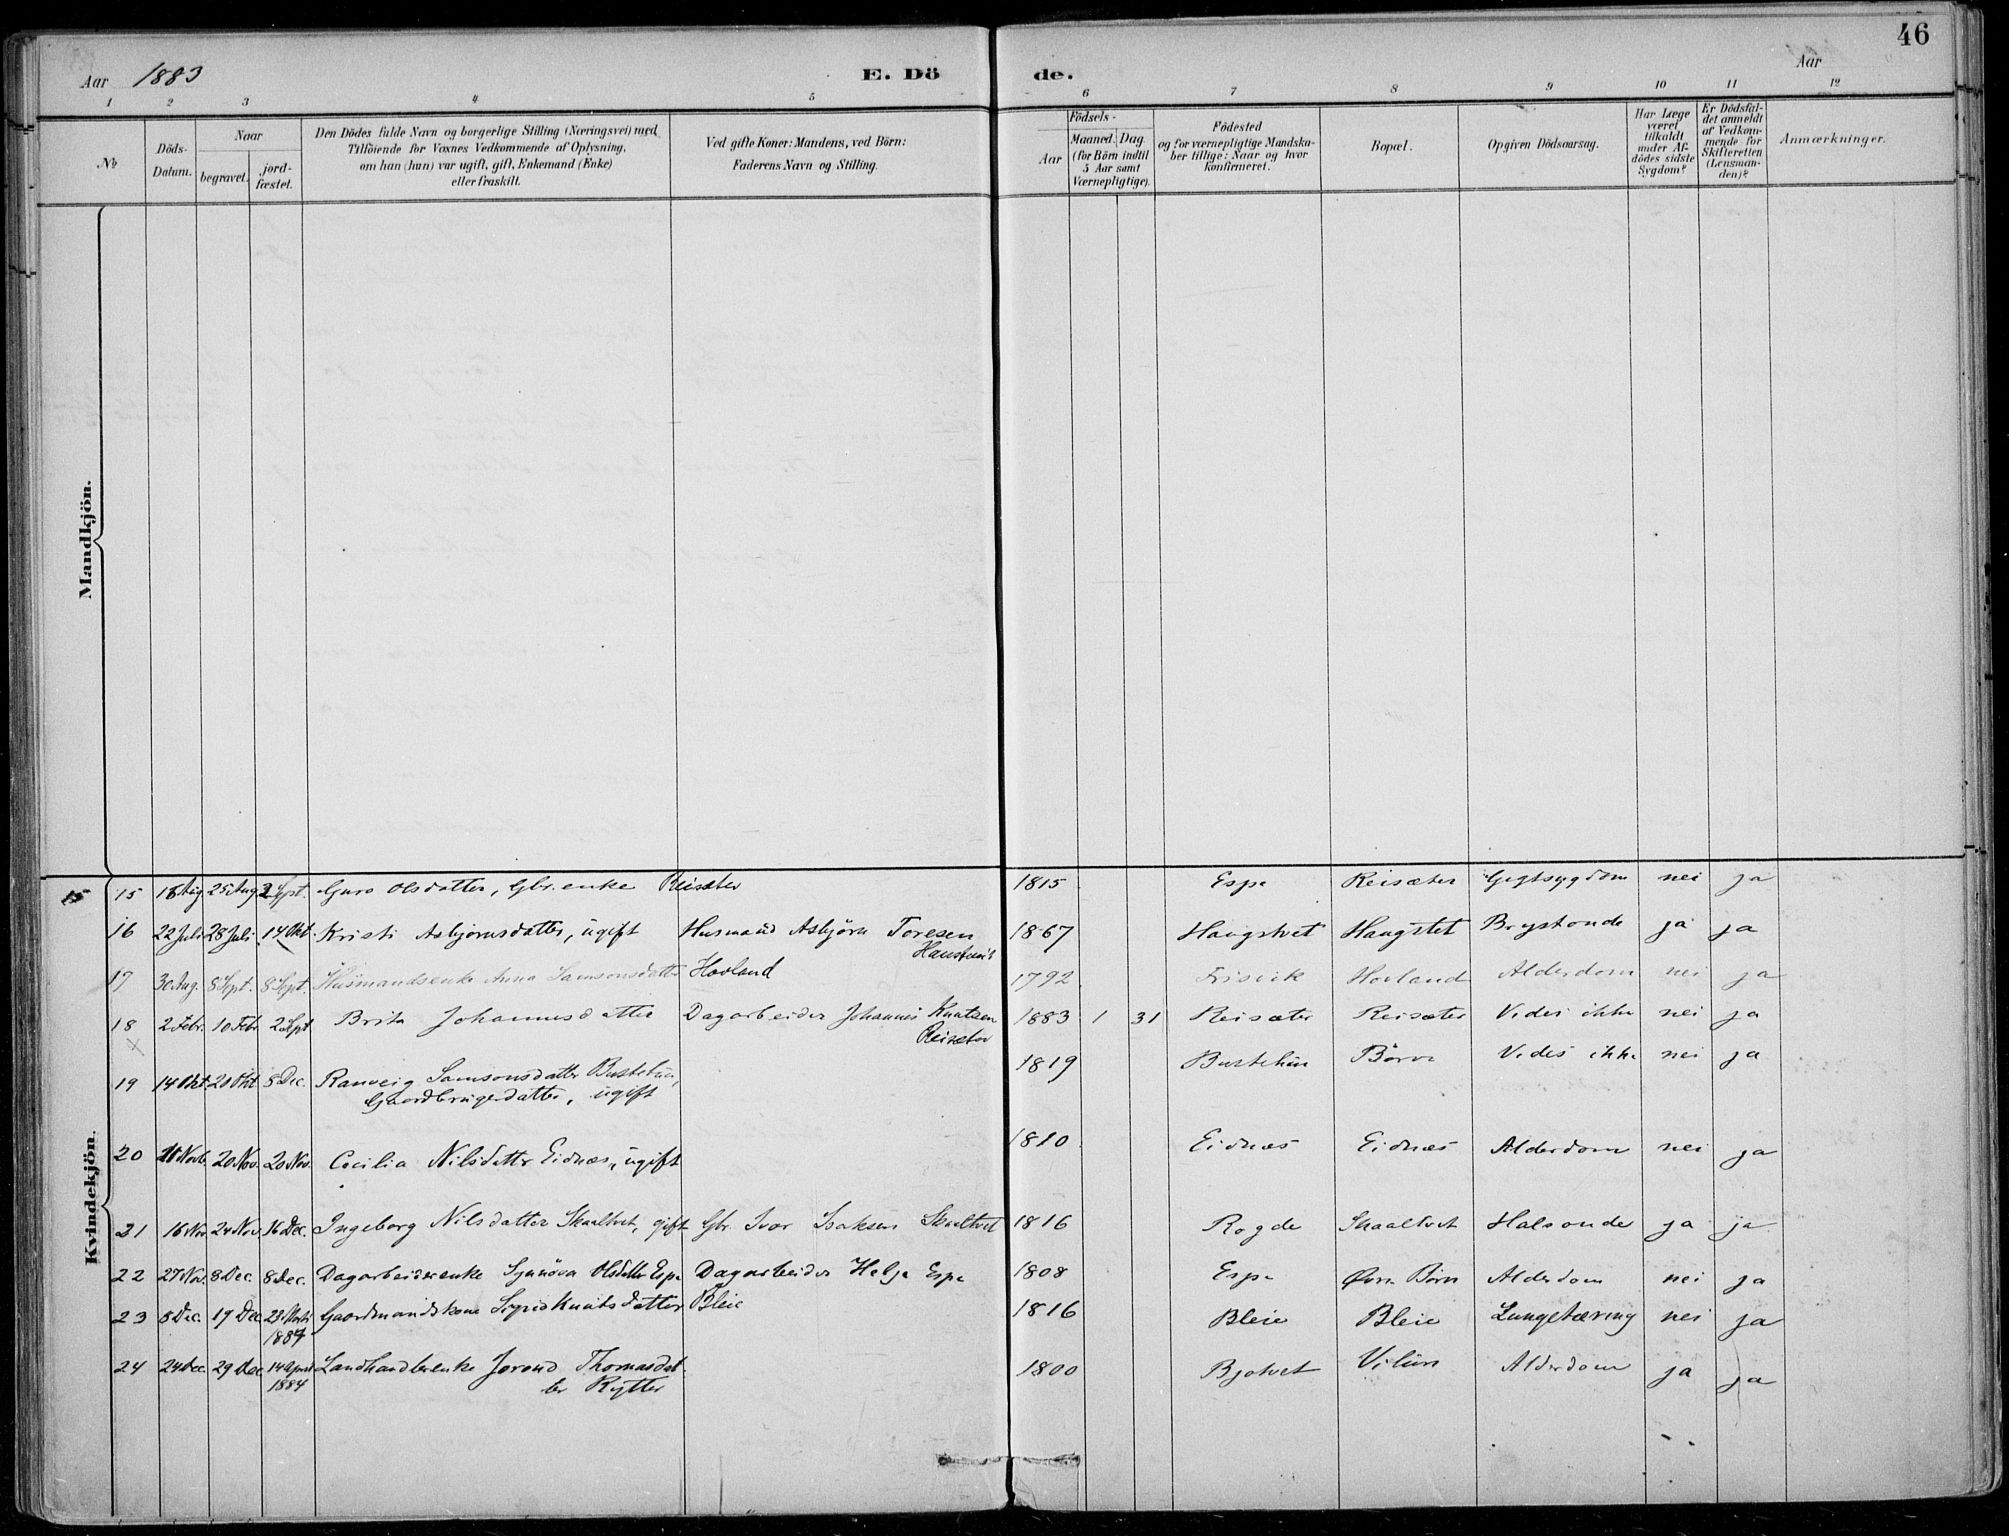 46
Aar 1883
E. Dö
de.
Aar
1 2 3 4 5 6 7 8 9 10 11 12
No
Döds-Datum.
Naar
begravet.
jord-fæstet.
Den Dödes fulde Navn og borgerlige Stilling (Næringsvei) med
Tilföiende for Voxnes Vedkommende af Oplysning,
om han (hun) var ugift, gift, Enkemand (Enke)
eller fraskilt.
Ved gifte Koner: Mandens, ved Börn:
Faderens Navn og Stilling.
Födsels-
Aar
Maaned. Dag
(for Börn indtil
5 Aar samt
Værnepligtige).
Födested
og for værnepligtige Mandska-
ber tillige: Naar og hvor
konfirmeret.
Bopæl.
Opgiven Dödsaarsag.
Har Læge
været
tilkaldt
under Af-
dödes sidste
Sygdom?
Er Dödsfal-
det anmeldt
af Vedkom-
mende for
Skifteretten
(Lensman-
den)?
Anmærkninger.
Mandkjön.
Kvindekjön.
15 15 18 Aug. 25 Aug. 2 Sept. Guro Olsdatter, Gbr.enke Reisæter 1815 Espe Reisæter Gigtsygdom nei ja
16 22 Juli 28 Juli 14 Okt. Kristi Asbjørnsdatter, ugift Husmand Asbjørn Toresen 1867 Haugstvet Haugstet Brystonde ja ja
17 30 Aug. 8 Sept. 8 Sept. Husmandsenke Anna Samsonsdatter Hovland 1792 Frisvik Hovland Alderdom nei ja
18 2 Febr. 10 Febr. 2 Sept. Brita Johannesdatter Dagarbeider Johannes Knutsen 1883 1 31 Reisæter Reisæter Vides ikke nei ja
Reisæter
19 14 Okt. 20 Okt. 8 Dec. Ranveig Samsonsdatter Bustetun, 1819 Bustetun Börve Vides ikke nei ja
Gaardbrugerdatter, ugift
20 Novb. 20 Nov. 20 Nov. Cecilia Nilsdatter Eidnæs, ugift 1810 Eidnæs Eidnæs Alderdom nei ja
21 16 Nov. 24 Nov. 16 Dec. Ingeborg Nilsdatter Skaaltvet, gift Gbr. Ivar Isaksen Skaaltvet 1816 Rogde Skaaltvet Halsonde ja ja
22 27 Nov. 8 Dec. 8 Dec. Dagarbeiderenke Synnöva Olsdatter Espe Dagarbeider Helje Espe 1808 Espe Øvre Börve Alderdom nei ja
23 8 Dec. 19 Dec. Gaardmandskone Sigrid Knutsdatter Bleie 1816 Bleie Bleie Lungetæring nei ja
1884
24 24 Dec. 29 Dec. 14 April Landhandlerenke Jorond Thomasdat- 1800 Bjotvet Vilure Alderdom ja ja
1884 ter Rytter